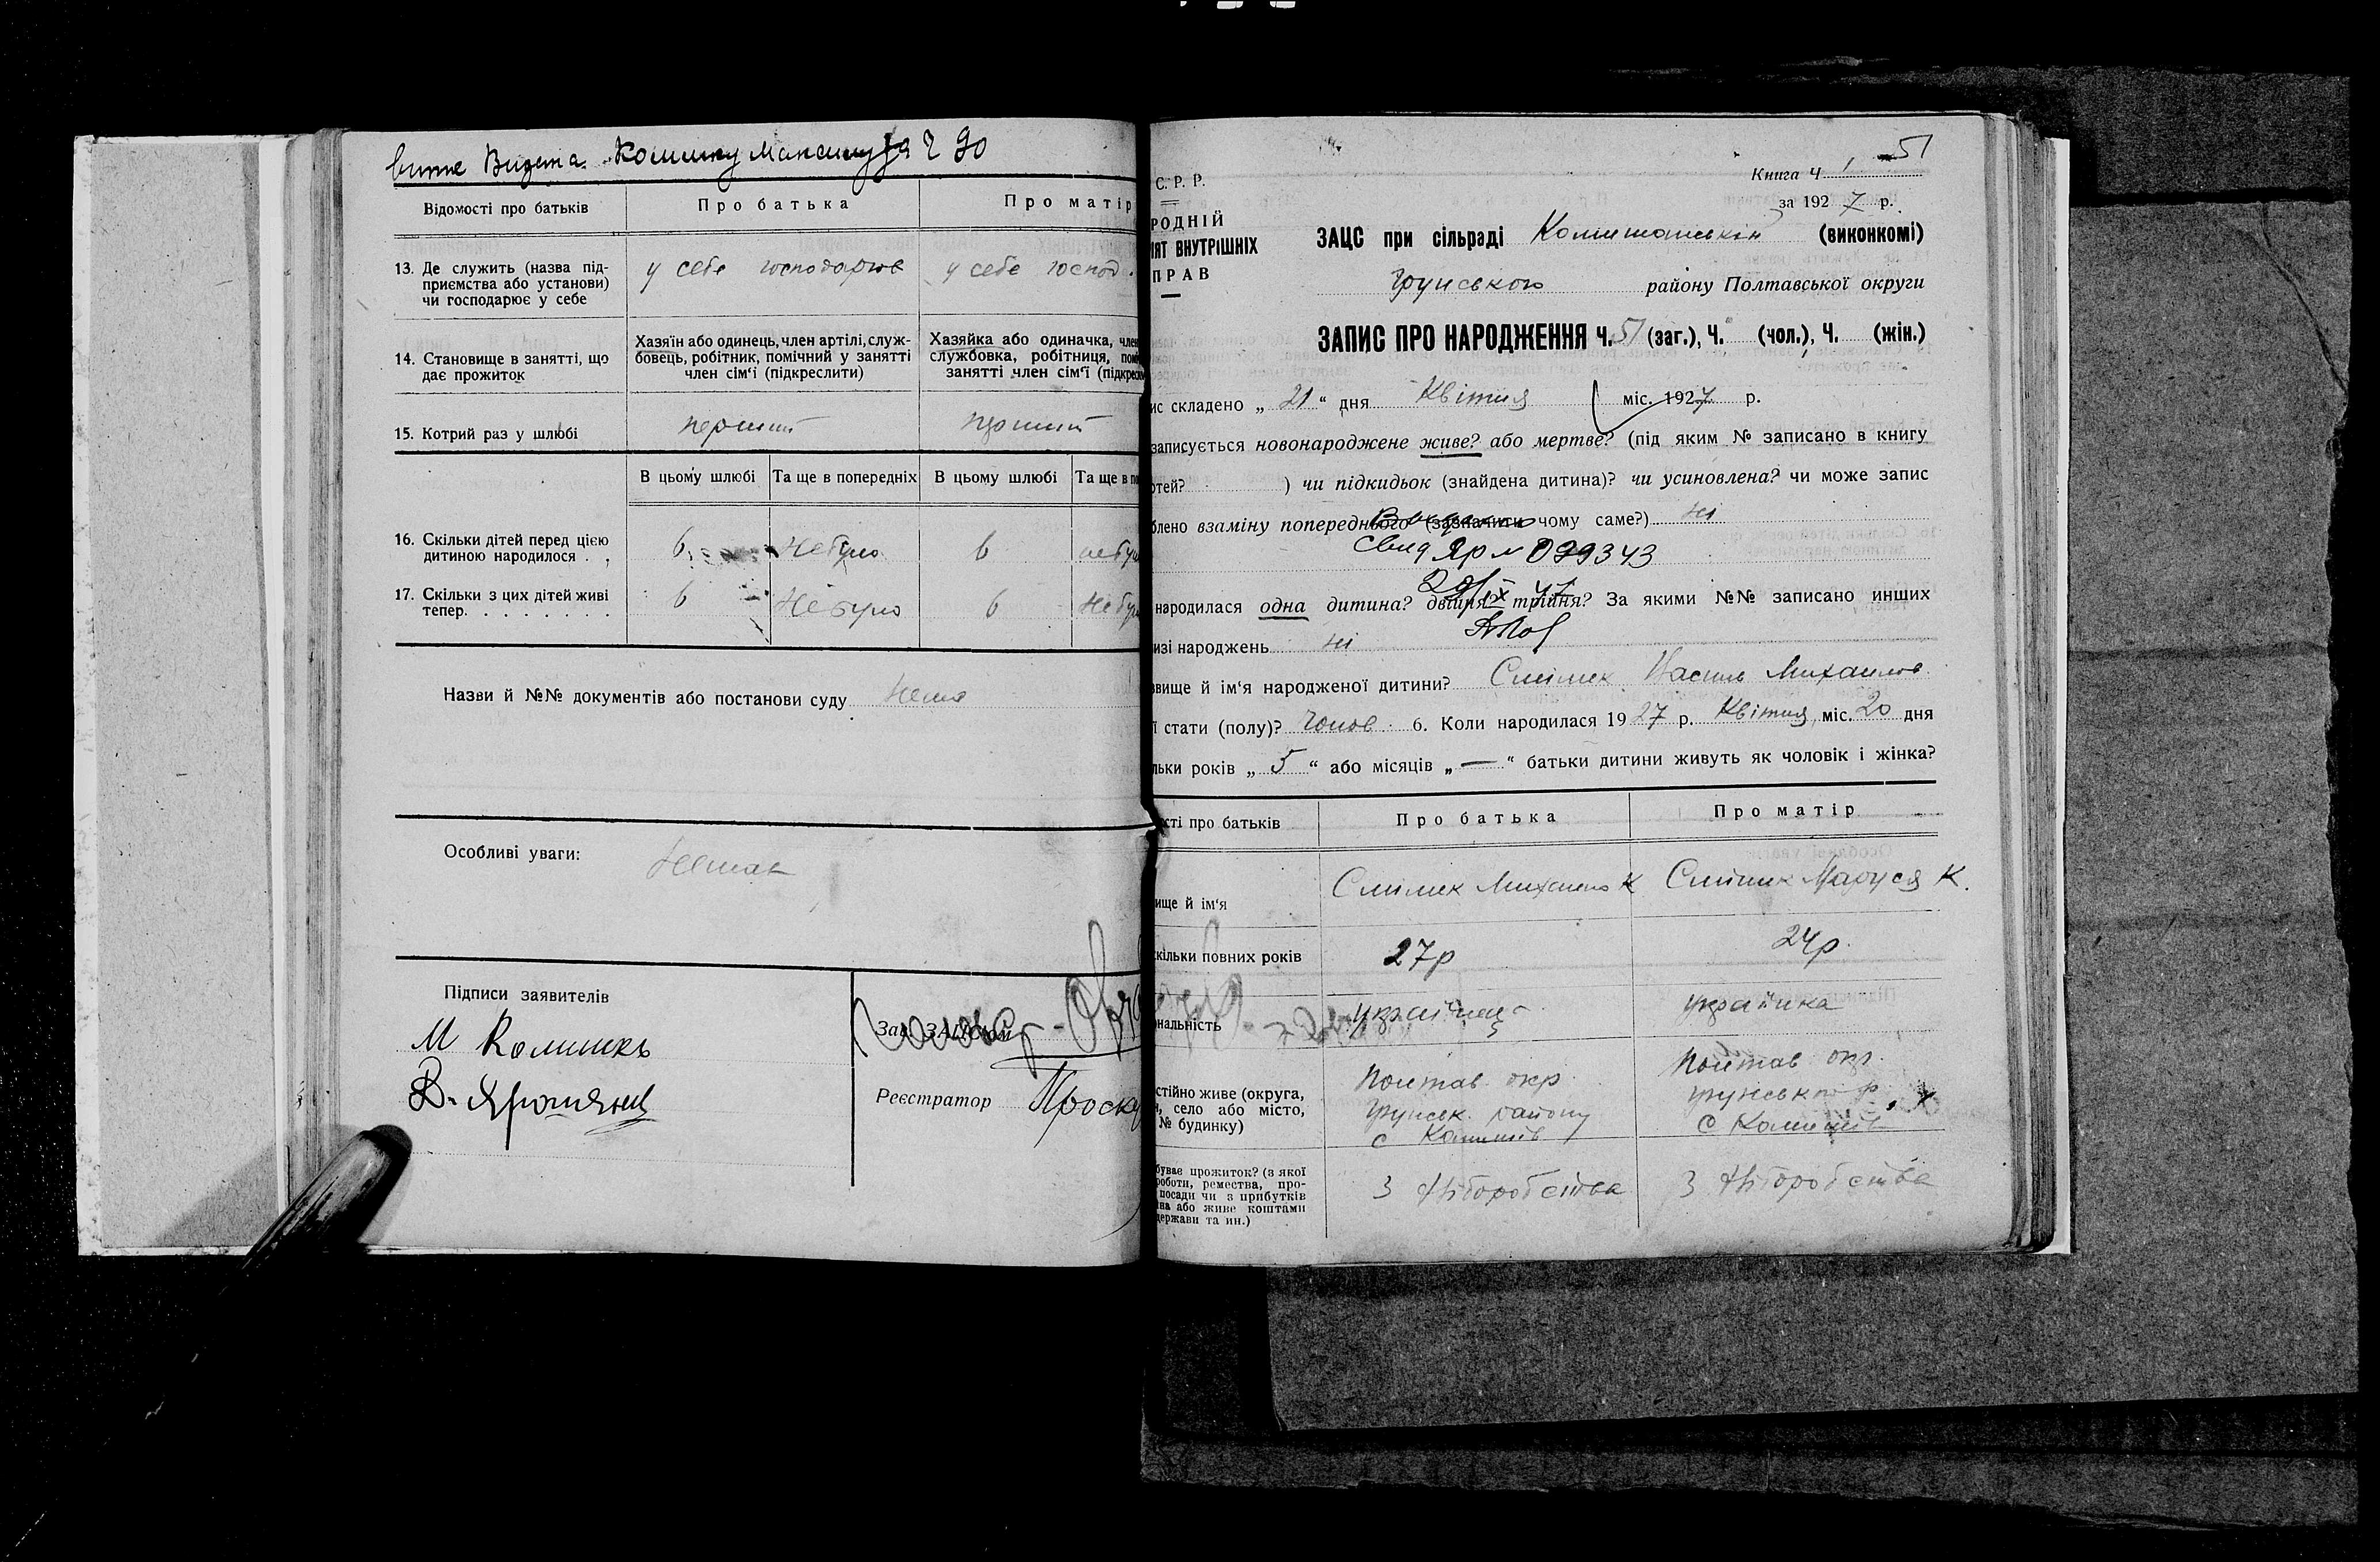 Видана Кошику Максиму ЯЧ 90
Відомості про батьків
Про батька
Про матір
13. Де служить (назва під-
приємства або установи)
чи господарює у себе
у себе господарює
у себе господ.
14. Становище в занятті, що
дає прожиток
Хазяїн або одинець, член артілі, служ-
бовець, робітник, помічний у занятті
член сім'ї (підкреслити)
Хазяйка або одиначка, член
службовка, робітниця, поміч
занятті член сім'ї (підкресл
15. Котрий раз у шлюбі
перший
перший
В цьому шлюбі
Та ще в попередніх
В цьому шлюбі
Та ще в по
16. Скільки дітей перед цією
дитиною народилося . .
6
Небуло
6
небуло
17. Скільки з цих дітей живі
тепер. . . . . . . .
6
Небуло
6
Небуло
Назви й №№ документів або постанови суду Нема
Особливі уваги:
Немає
Підписи заявителів
М Колишкъ
Зав. ЗАЦСом
Реєстратор Проску
51
Книга Ч. 1
за 1927 р.
С. Р. Р.
РОДНІЙ
ІЯТ ВНУТРІШНІХ
ПРАВ
ЗАЦС при сільраді Комишанській (виконкомі)
Грунського району Полтавської округи
ЗАПИС ПРО НАРОДЖЕННЯ Ч. 51 (заг.), Ч. (чол.), Ч. (жін.)
ис складено „ 21 “ дня Квітня міс. 1927 р.
записується новонароджене живе? або мертве? (під яким № записано в книгу
ртей? ) чи підкидьок (знайдена дитина)? чи усиновлена? чи може запис
блено взаміну попереднього (зазначити чому саме?) ні
Видано
свид ЯР № 099343
29/IX 47
народилася одна дитина? двійня? трійня? За якими №№ записано инших
изі народжень ні
звище й ім'я народженої дитини? Слїпик Василь Михайлов
ї стати (полу)? Чолов. 6. Коли народилася 1927 р. Квітня міс. 20 дня
льки років „ 5 “ або місяців „ — “ батьки дитини живуть як чоловік і жінка?
сті про батьків
Про батька
Про матір
ище й ім'я
Слїпик Михайло К
Слїпик Маруся К.
кільки повних років
27р
24р.
ональність
українець
українка
стійно живе (округа,
н, село або місто,
№ будинку)
Полтав. окр.
Грунськ. району
с Комиші
Полтав окр.
Грунського р.
с Комиші
буває прожиток? (з якої
роботи, ремества, про-
посади чи з прибутків
їна або живе коштами
держави та ин.)
З хліборобства
З хліборобства